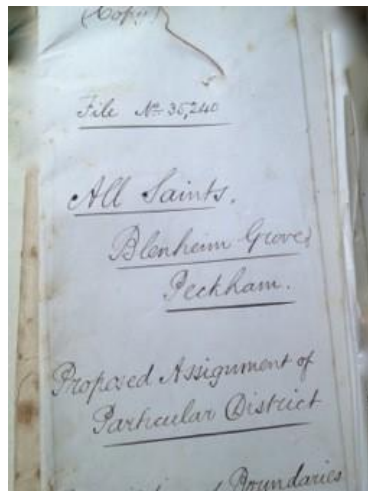 (Copy)
File No 35,240
All Saints,
Blenheim Grove,
Peckham.
Proposed Assignment of
Particular District
Boundaries